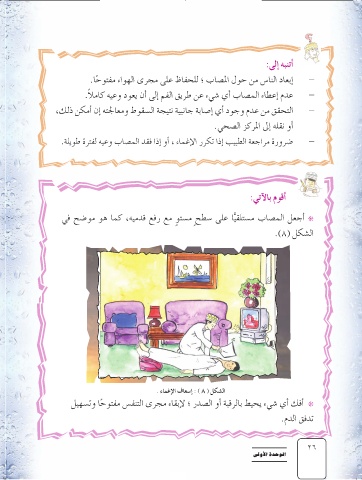 أنتبه إلى:
– إبعاد الناس من حول المصاب ؛ للحفاظ على مجرى الهواء مفتوحًا.
– عدم إعطاء المصاب أي شيء عن طريق الفم إلى أن يعود وعيه كاملاً.
– التحقق من عدم وجود أي إصابة جانبية نتيجة السقوط ومعالجته إن أمكن ذلك،
أو نقله إلى المركز الصحي.
– ضرورة مراجعة الطبيب إذا تكرر الإغماء ، أو إذا فقد المصاب وعيه لفترة طويلة.
أقوم بالآتي:
* أجعل المصاب مستلقيًا على سطح مستوٍ مع رفع قدميه، كما هو موضح في
الشكل (٨).
الشكل (٨) : إسعاف الإغماء.
* أفك أي شيء يحيط بالرقبة أو الصدر ؛ لإبقاء مجرى التنفس مفتوحًا وتسهيل
تدفق الدم.
الوحدة الأولى
٢٦